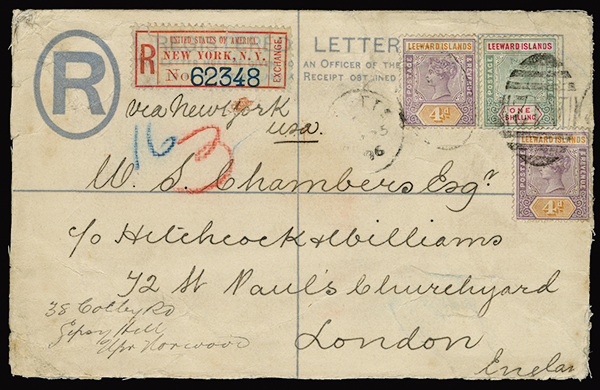 R
UNITED STATES OF AMERICA.
R NEW YORK, N.Y. EXCHANGE
No 62348
LETTER
AN OFFICER OF THE
RECEIPT OBTAINED
LEEWARD ISLANDS
POSTAGE
4d
LEEWARD ISLANDS
POSTAGE
ONE SHILLING
LEEWARD ISLANDS
POSTAGE
4d
via New York
usa.
96
16
3
W. S. Chambers Esqr
c/o Hitchcock & Williams
72 St Paul's Churchyard
London
Englan
38 Colby Rd
Gipsy Hill
Upr Norwood